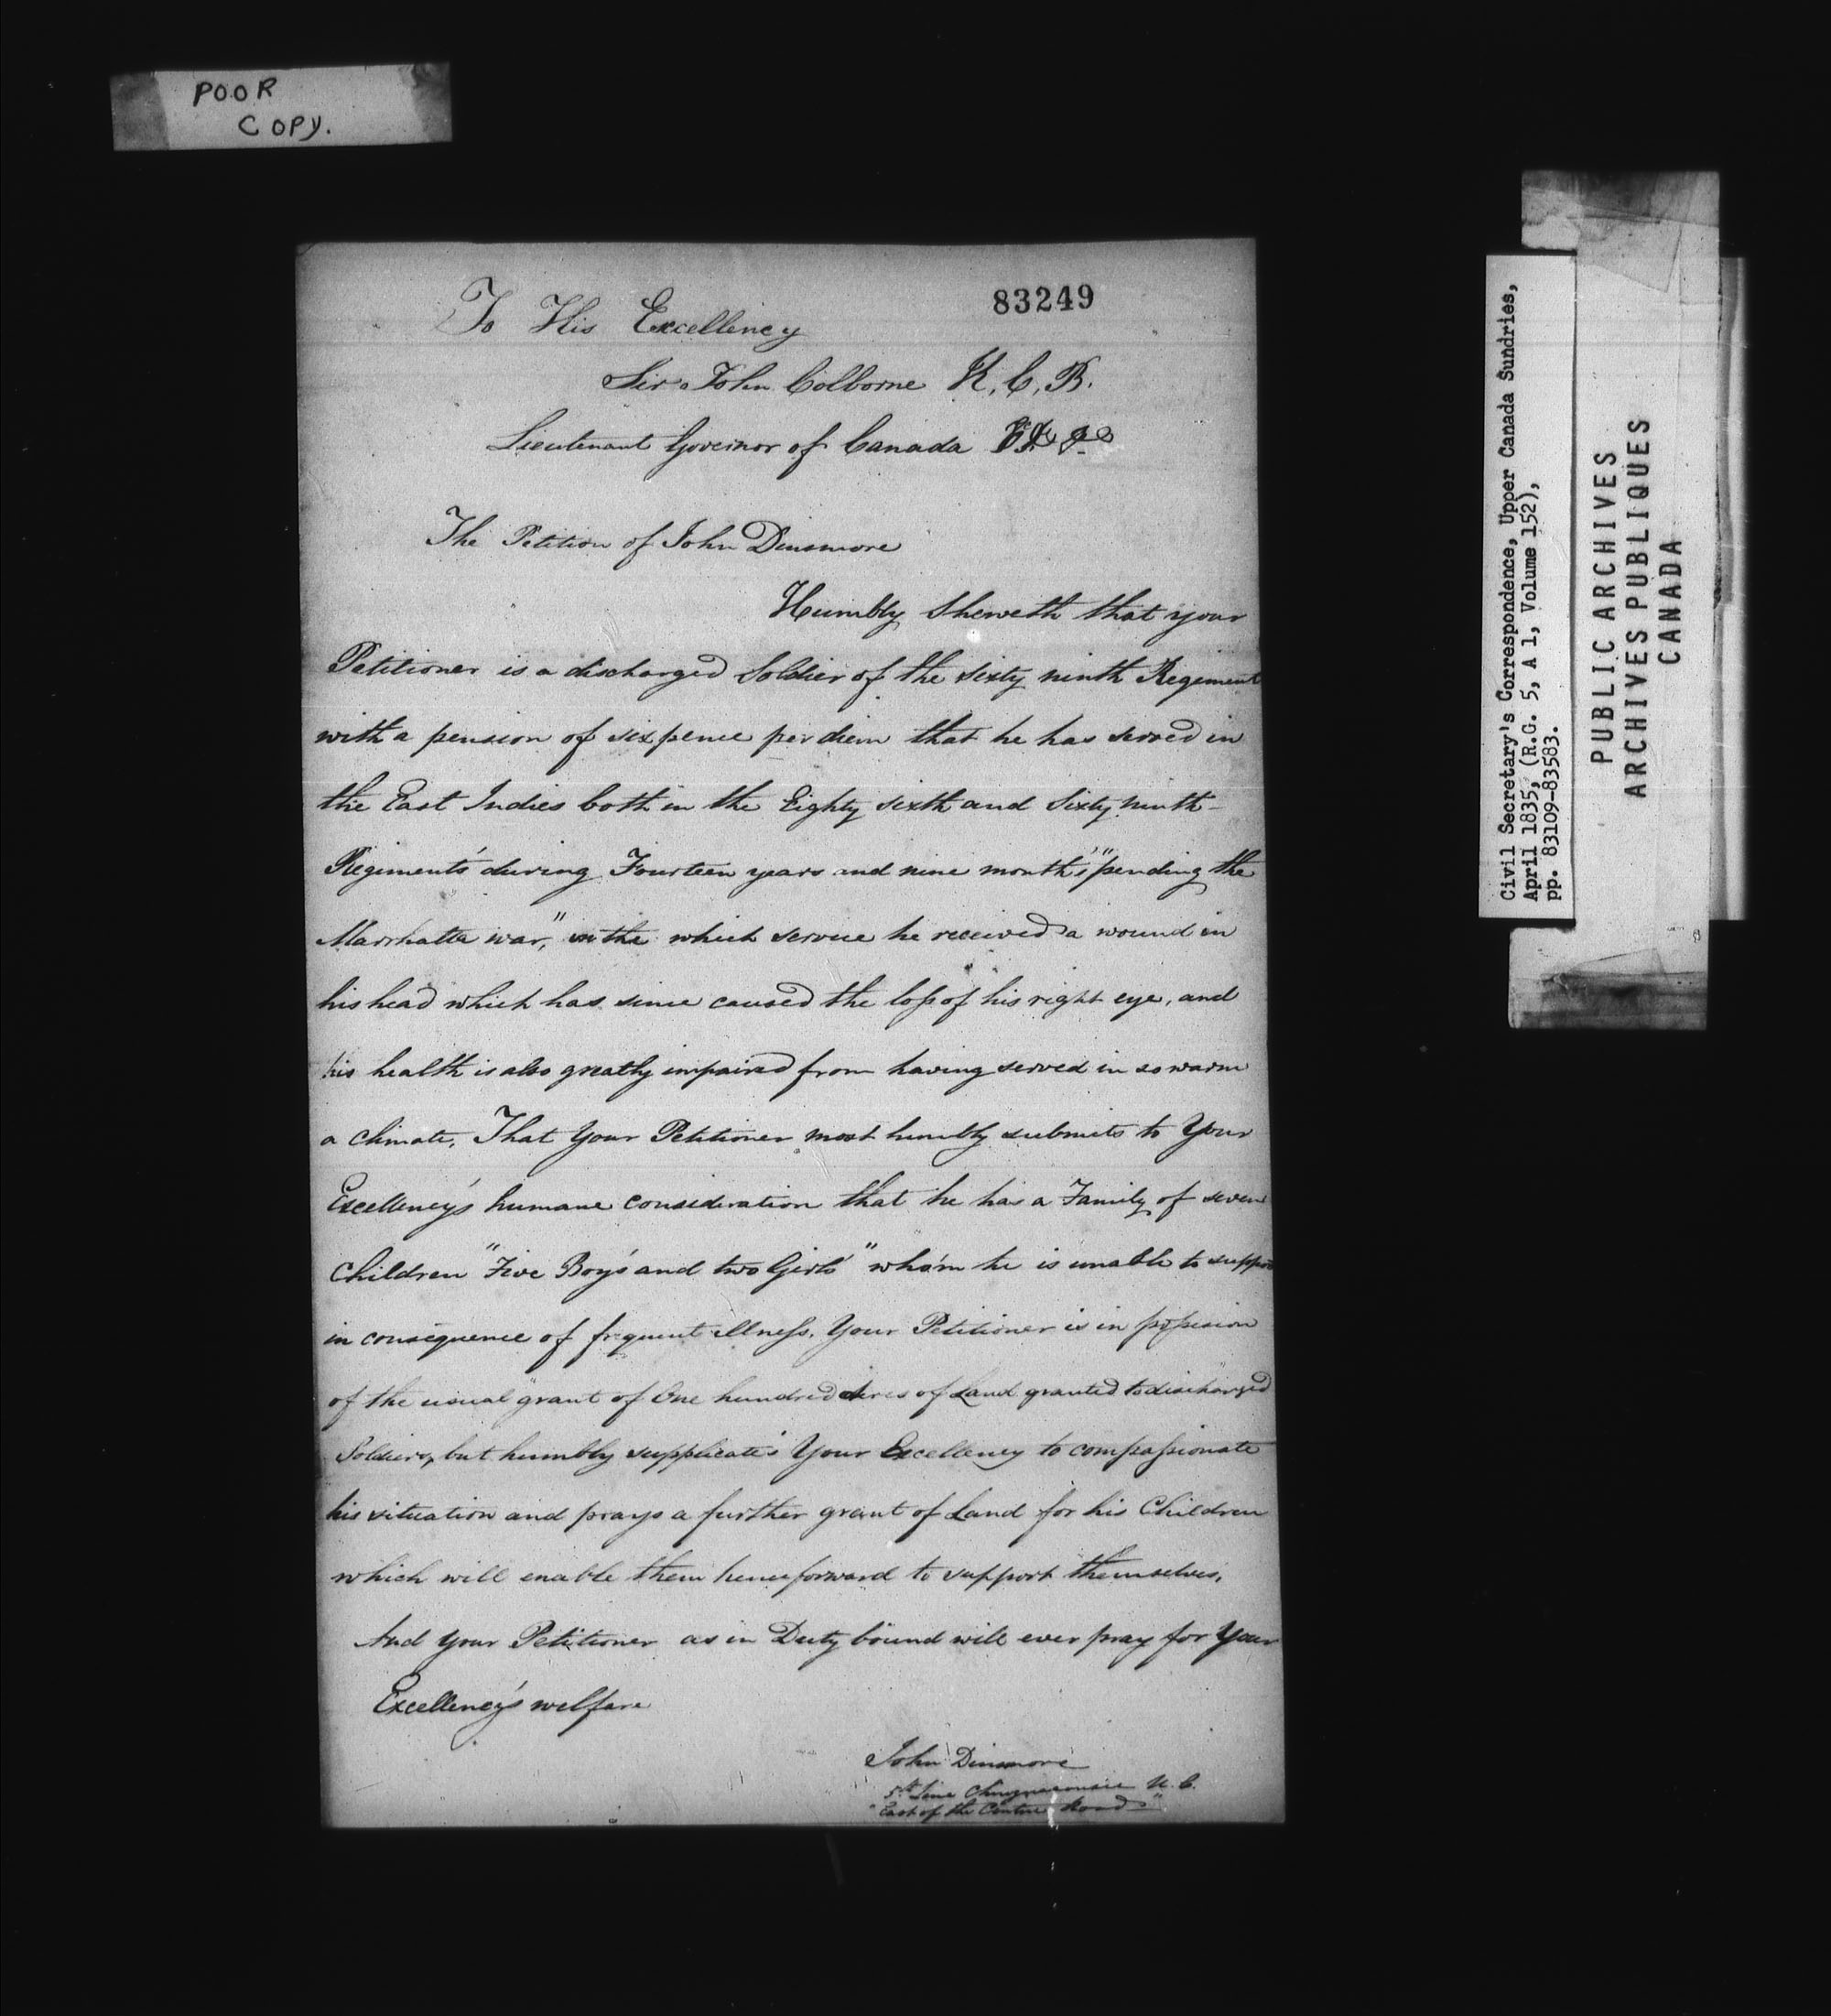 POOR
COPY.
83249
To His Excellency
Sir John Colborne K.C.B.
Lieutenant Governor of Canada
The Petition of John Dinsmore
Humbly Sheweth that your
Petitioner is a discharged Soldier of the sixty ninth Regiment
with a pension of sixpence per diem that he has served in
the East Indies both in the Eighty sixth and Sixty ninth
Regiment's during Fourteen years and nine month's, "pending the
Marrhatta war," in the which service he received a wound in
his head which has since caused the loss of his right eye, and
his health is also greatly impaired from having served in so warm
a climate. That Your Petitioner most humbly submits to Your
Excellency's humane consideration that he has a Family of seven
Children "Five Boy's and two Girls" whom he is unable to suppor
in consequence of frequent illness. Your Petitioner is in possesion
of the usual grant of One hundred Acres of Land granted to discharged
Soldiers, but humbly supplicate's Your Excellency to compassionate
his situation and prays a further grant of Land for his Children
which will enable them henceforward to support themselves.
And Your Petitioner as in Duty bound will ever pray for Your
Excellency's welfare
John Dinsmore
5th Line Chinguacousie U.C.
"East of the Centre Road"
Civil Secretary's Correspondence, Upper Canada Sundries,
April 1835, (R.G. 5, A 1, Volume 152),
pp. 83109-83583.
PUBLIC ARCHIVES
ARCHIVES PUBLIQUES
CANADA